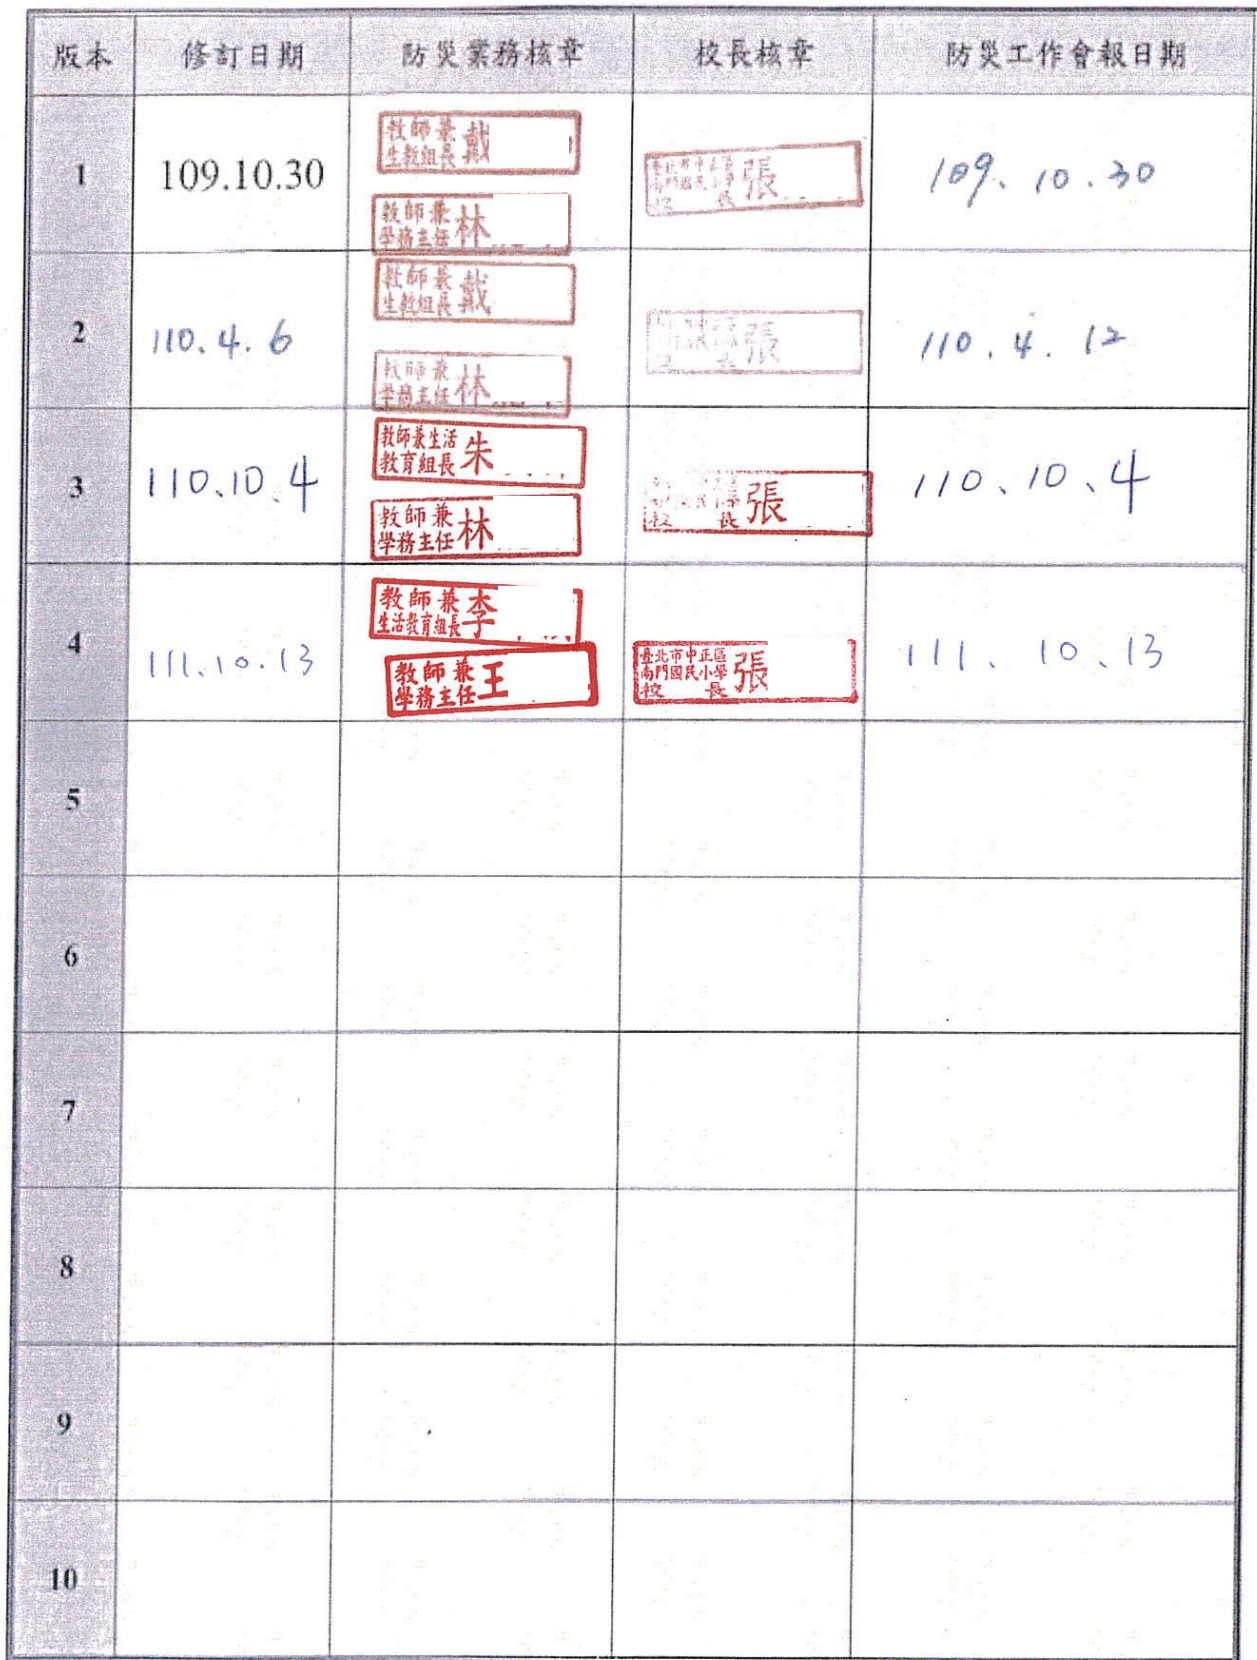 版本 修訂日期 防災業務核章 校長核章 防災工作會報日期
1 109.10.30
教師兼
生教組長 戴
教師兼
學務主任 林
張
校 長
109.10.30
2 110.4.6
教師兼
生教組長 戴
教師兼
學務主任 林
張
110.4.12
3 110.10.4
教師兼生活
教育組長 朱
教師兼
學務主任 林
校 長 張
110.10.4
4 111.10.13
教師兼
生活教育組長 李
教師兼
學務主任 王
臺北市中正區
南門國民小學
校 長 張
111.10.13
5
6
7
8
9
10